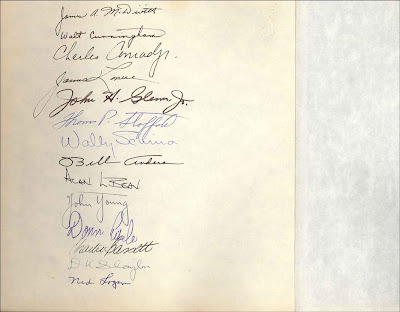 James A. McDivitt
Walt Cunningham
Charles Conrad Jr.
James Lovell
John H. Glenn Jr.
Thomas P. Stafford
Wally Schirra
Bill Anders
ALAN L BEAN
John Young
Donn Eisele
Charles Bassett
D K Slayton